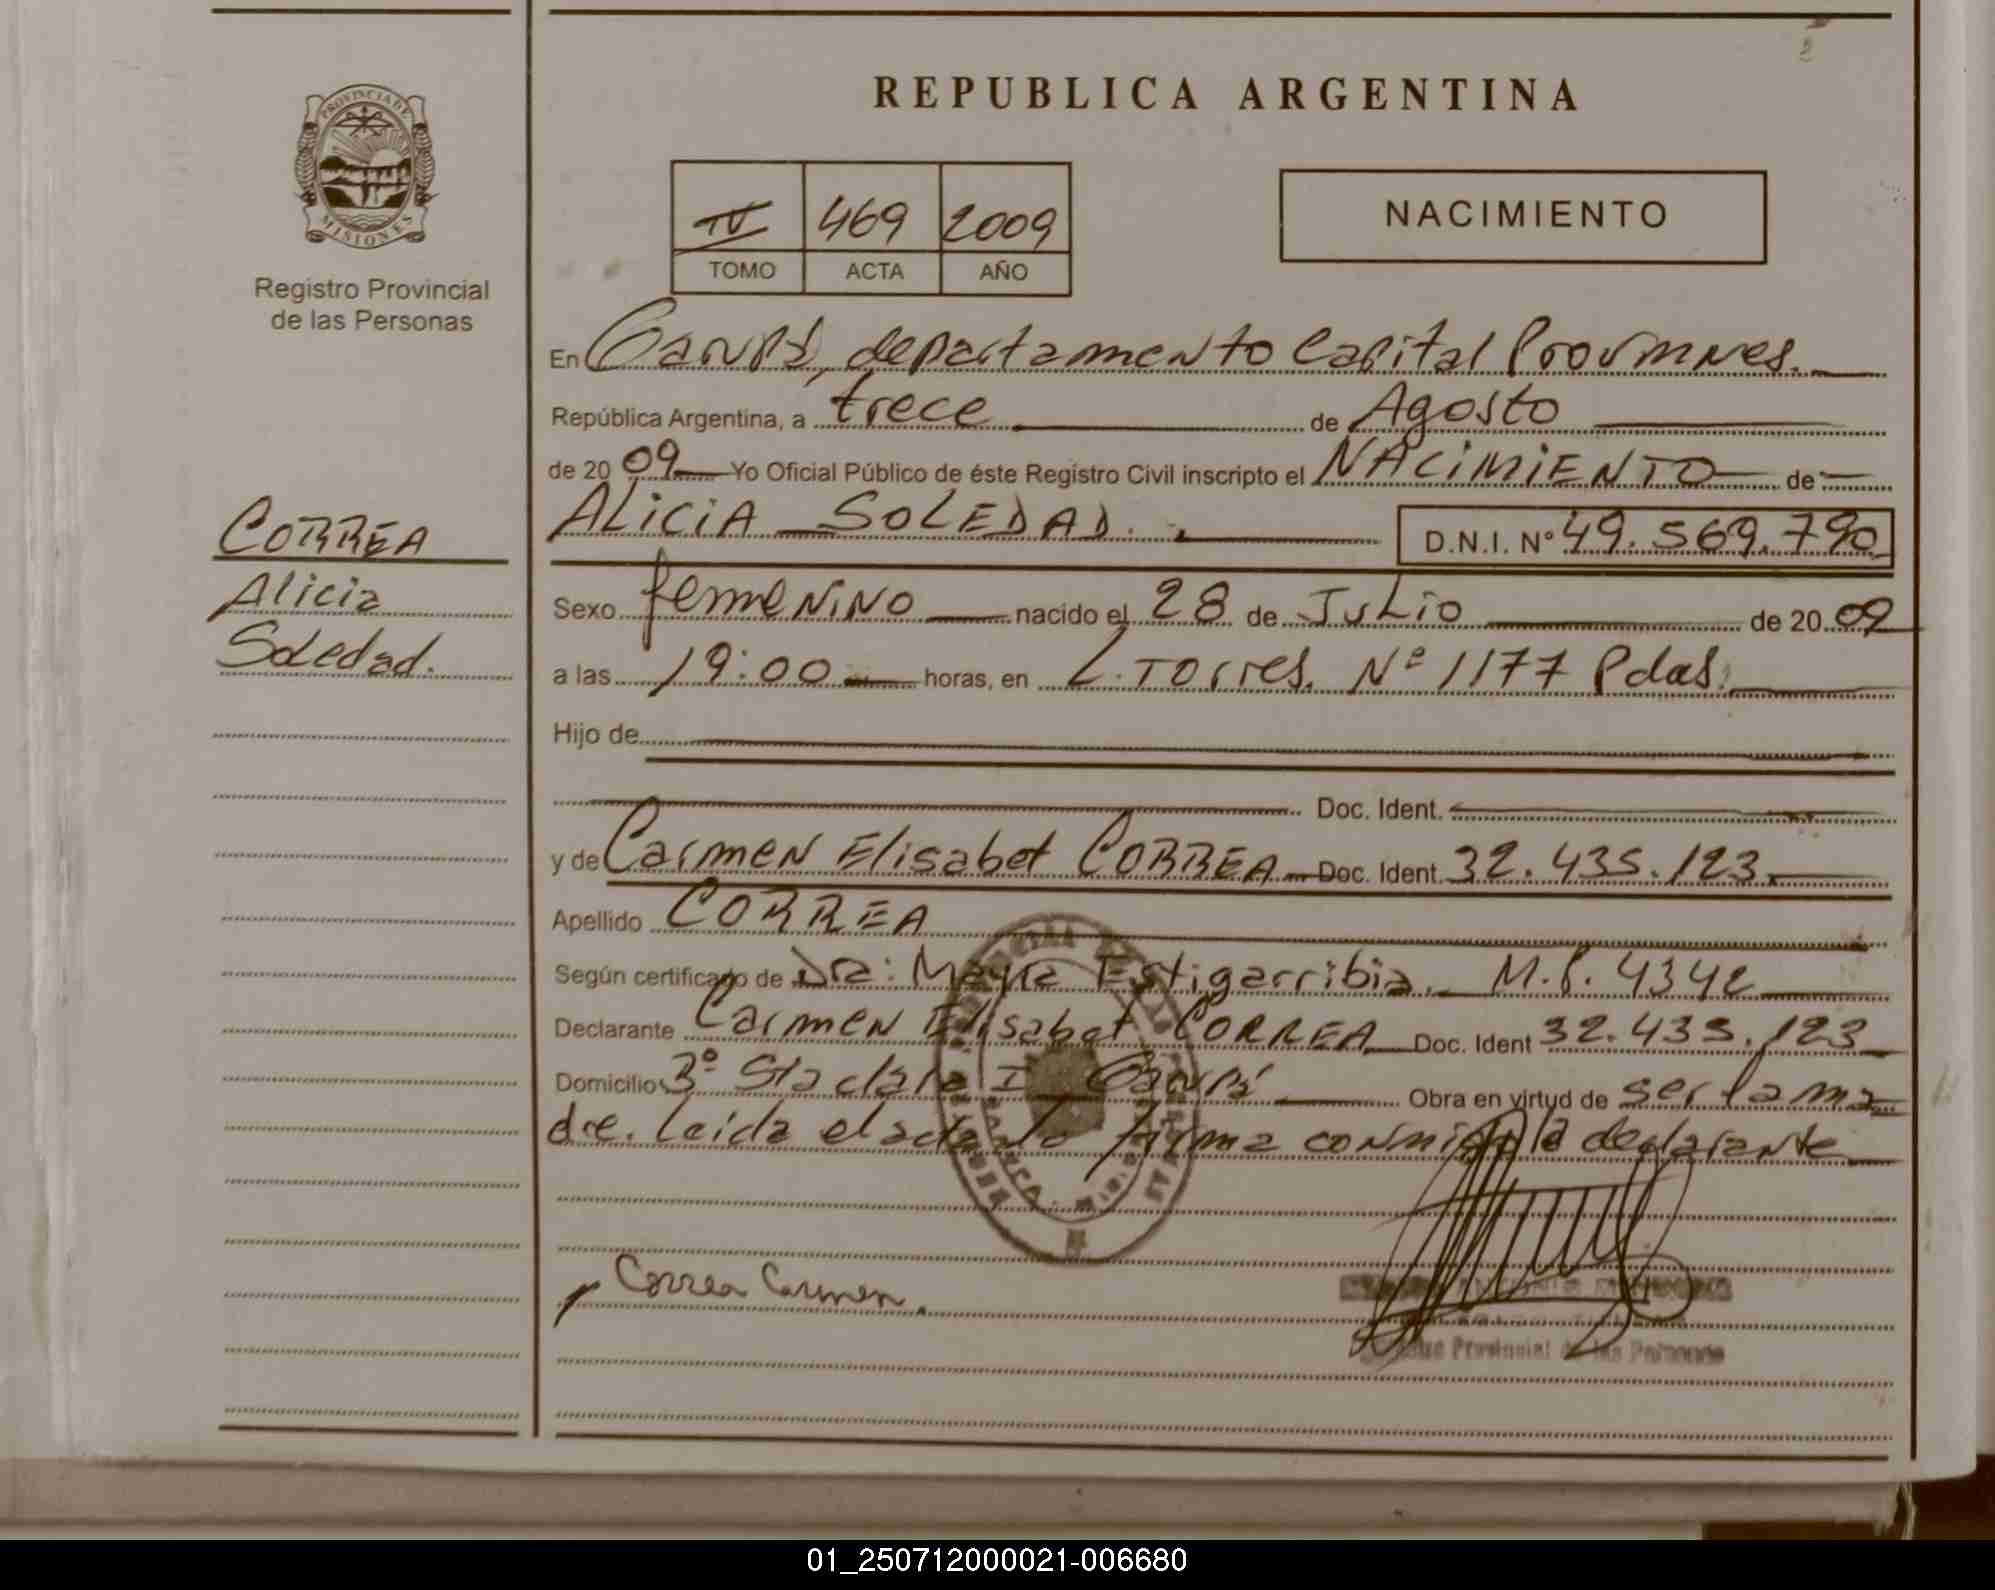 REPUBLICA ARGENTINA
PROVINCIA DE
MISIONES
Registro Provincial
de las Personas
IV 469 2009
TOMO ACTA AÑO
NACIMIENTO
En Garupá, departamento Capital Prov mnes.
República Argentina, a trece de Agosto
de 20 09 Yo Oficial Público de éste Registro Civil inscripto el NACIMIENTO de
ALICIA SOLEDAD. D.N.I. Nº 49.569.790
CORREA
Alicia
Soledad.
Sexo femenino nacido el 28 de Julio de 20 09
a las 19:00 horas, en L. Torres. Nº 1177 Pdas.
Hijo de
Doc. Ident.
y de Carmen Elisabet CORREA Doc. Ident. 32.435.123.
Apellido CORREA
Según certificado de Dra: Mayra Estigarribia. M.P. 4342
Declarante Carmen Elisabet CORREA Doc. Ident 32.435.123
Domicilio 3º Sta clara I Garupá Obra en virtud de ser la ma
dre. Leida el acta la firma conmigo la declarante
Correa Carmen.
Provincial de las Personas
01_250712000021-006680